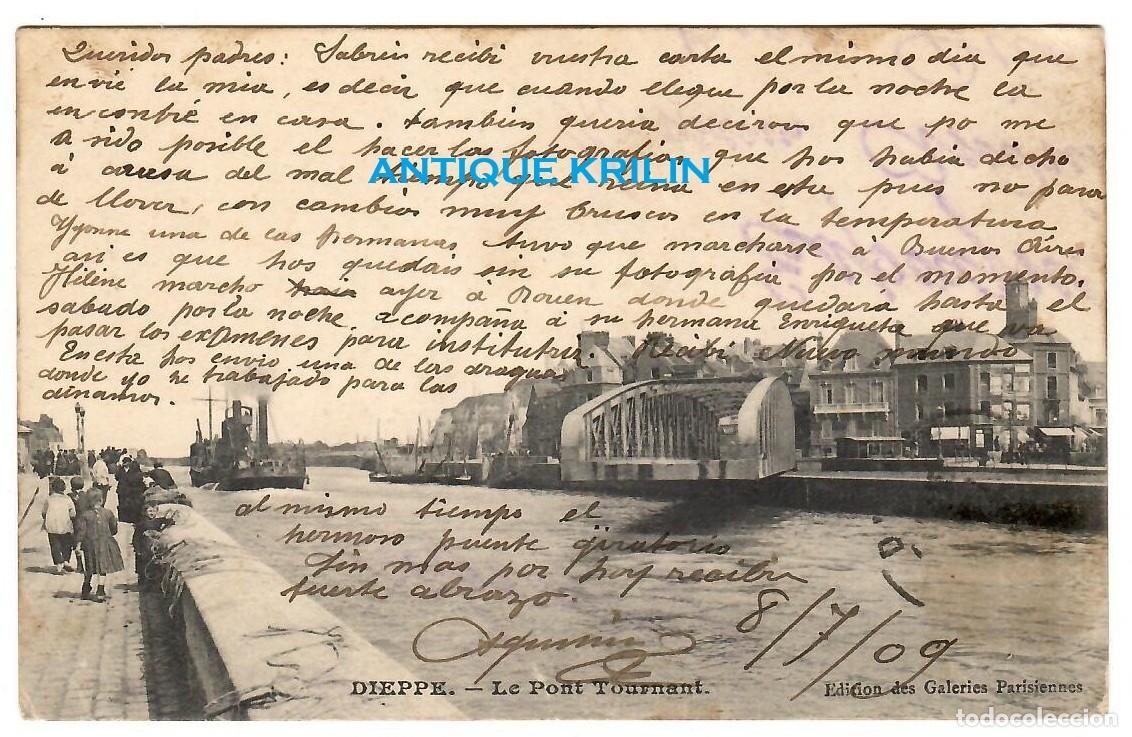 Queridos padres: Sabreis recibi vuestra carta el mismo dia que
envié la mia, es decir que cuando llegue por la noche la
encontré en casa. tambien queria deciros que no me
a sido posible el hacer las fotografias que hos habia dicho
á causa del mal tiempo que reina en esta pues no para
de llover, con cambios muy bruscos en la temperatura
Yvonne una de las hermanas tuvo que marcharse á Buenos Aires
asi es que hos quedais sin su fotografia por el momento.
Hélène marcho ayer á Rouen donde quedara hasta el
sabado por la noche. acompaña á su hermana Enriqueta que va
pasar los exámenes para institutriz Recibi Nuevo mundo
En esta hos envio una de las dragas
donde yo he trabajado para las
dinamos.
al mismo tiempo el
hermoso puente giratorio
Sin mas por hoy recibir
fuerte abrazo.
8/7/09
ANTIQUE KRILIN
DIEPPE. — Le Pont Tournant.
Edition des Galeries Parisiennes
todocoleccion